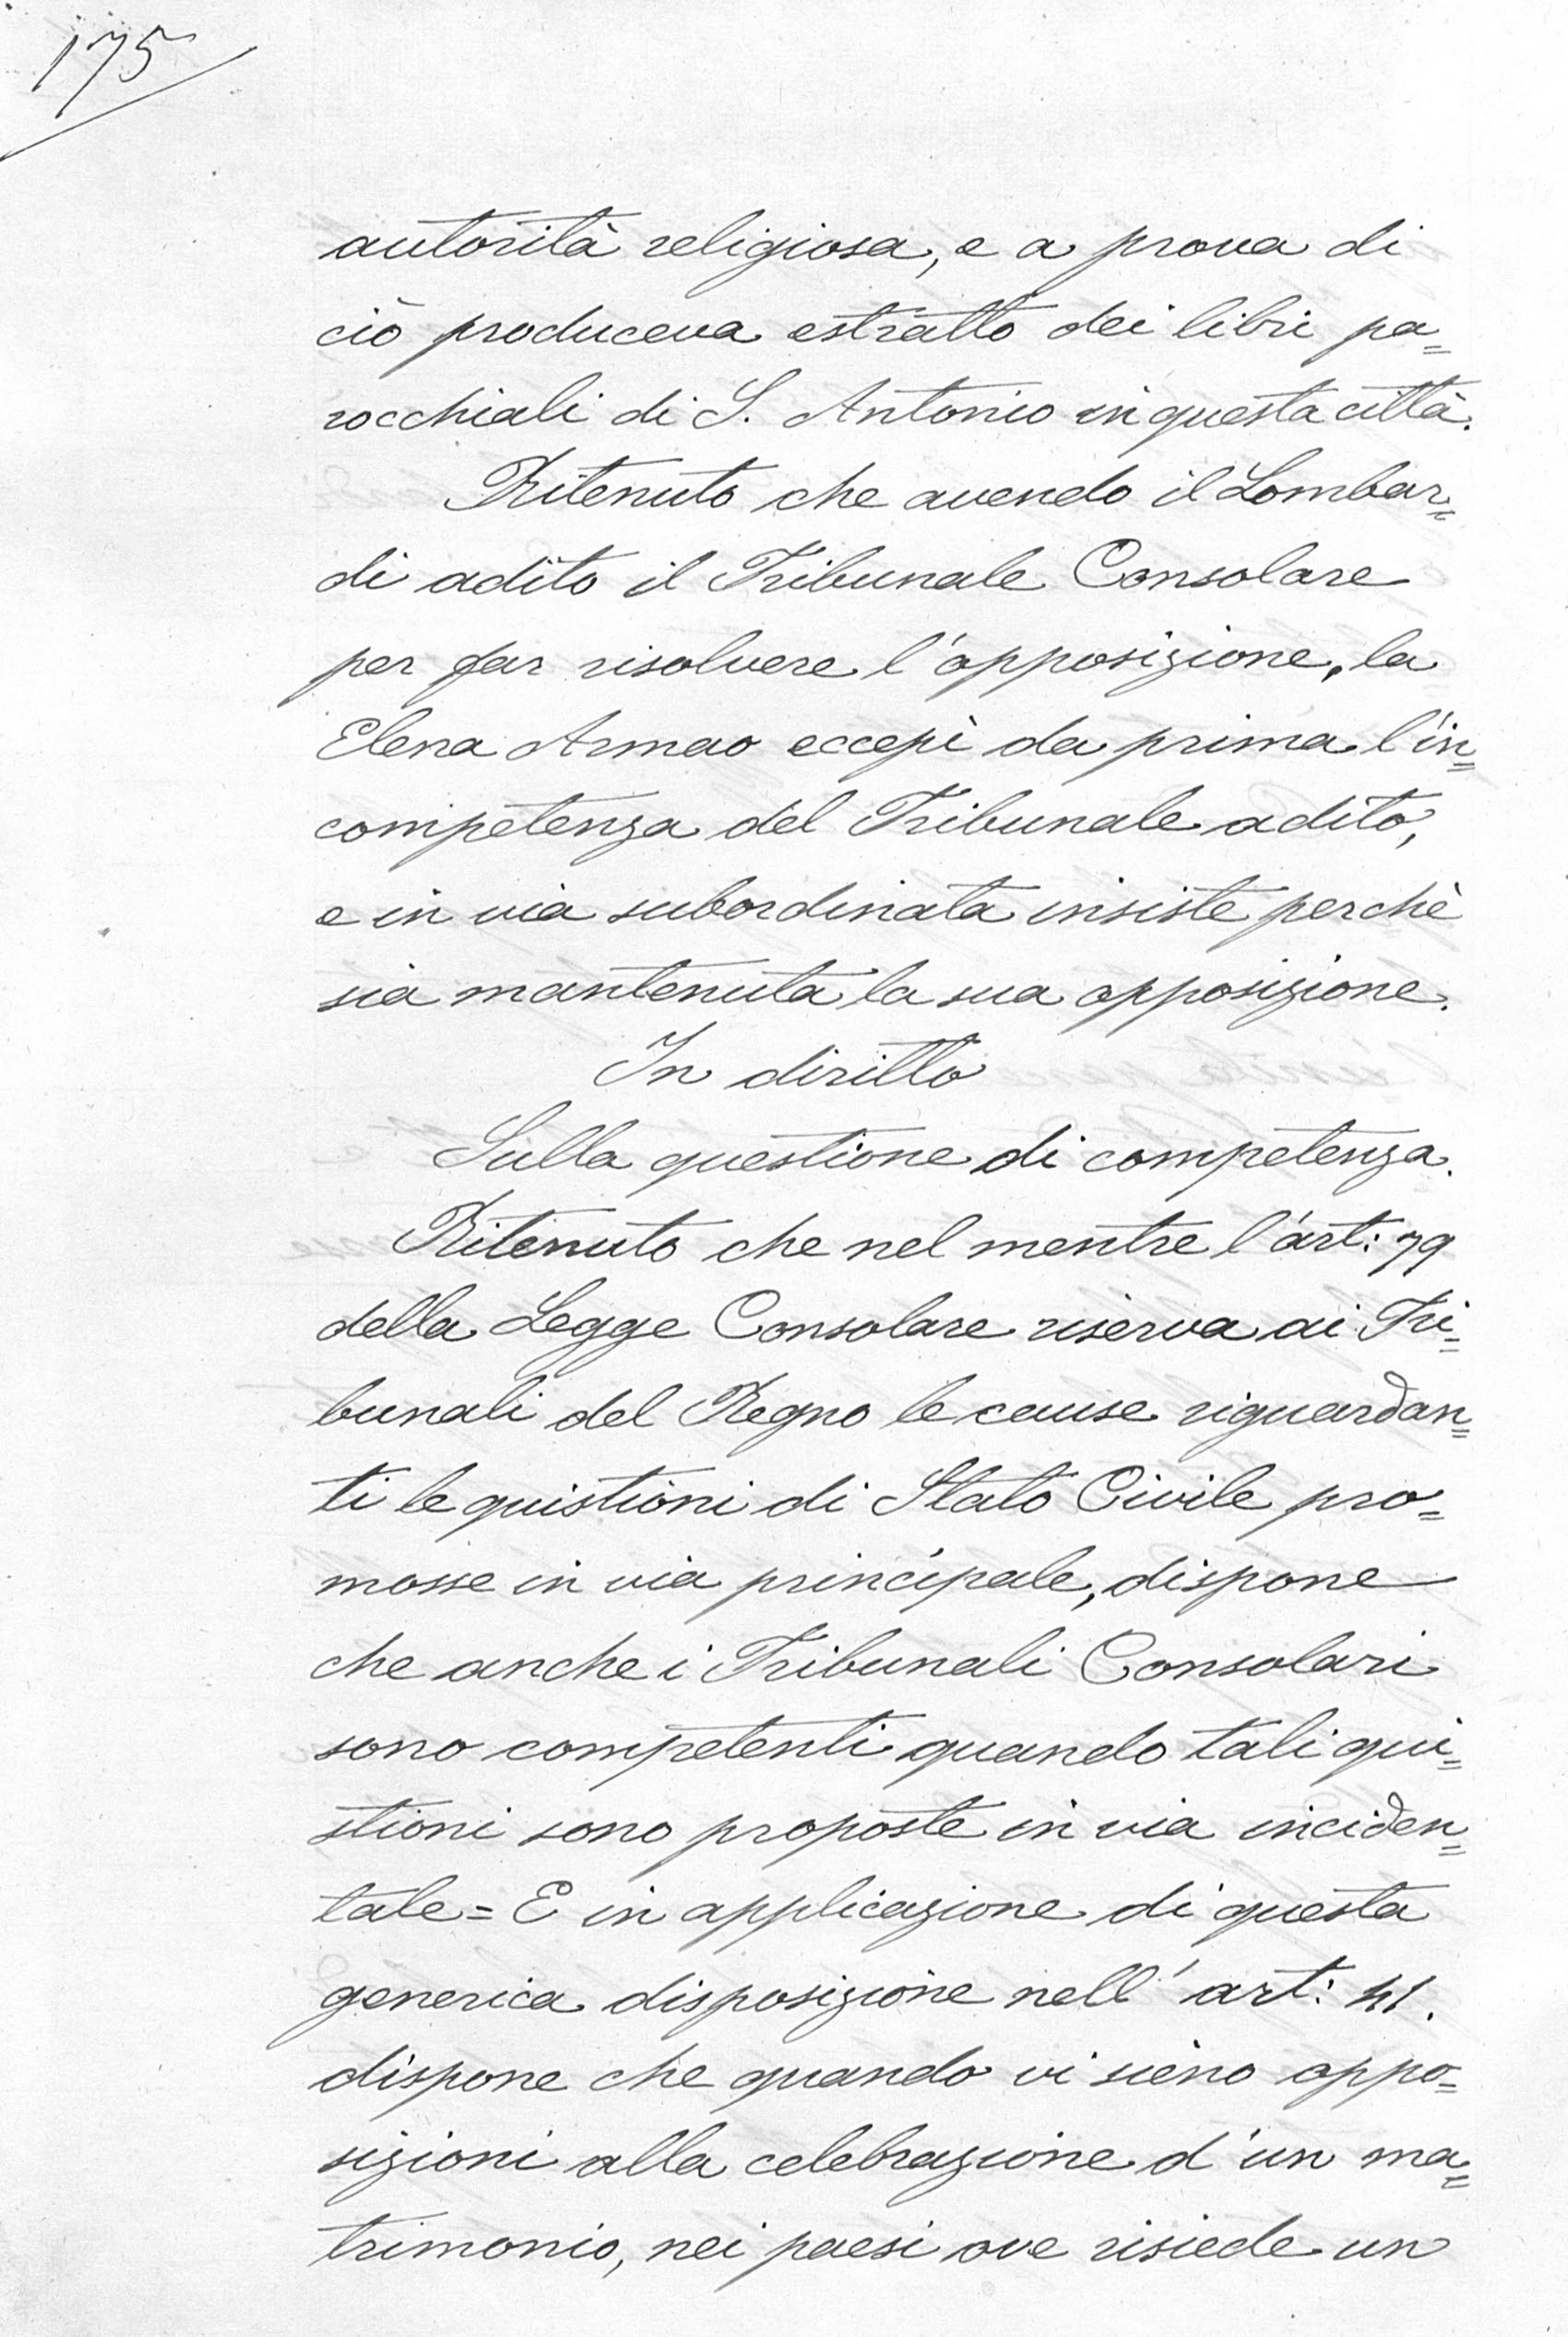 175
autorità religiosa, e a prova di
ciò produceva estratto dei libri pa=
rocchiali di S. Antonio in questa città.
Ritenuto che avendo il Lombar=
di adito il Tribunale Consolare
per far risolvere l'opposizione, la
Elena Armao eccepì da prima l'in=
competenza del Tribunale adito,
e in via subordinata insiste perchè
sia mantenuta la sua opposizione.
In diritto
Sulla questione di competenza.
Ritenuto che nel mentre l'art: 79
della Legge Consolare riserva ai Tri=
bunali del Regno le cause riguardan=
ti le quistioni di Stato Civile pro=
mosse in via principale, dispone
che anche i Tribunali Consolari
sono competenti quando tali qui=
stioni sono proposte in via inciden=
tale = E in applicazione di questa
generica disposizione nell' art: 41.
dispone che quando vi sieno oppo=
sizioni alla celebrazione d'un ma=
trimonio, nei paesi ove risiede un